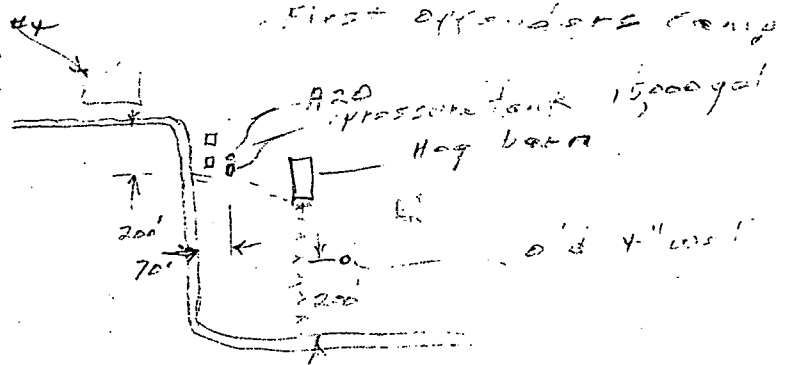 First offenders Camp
#4
A20
pressure tank 15,000 gal
Hog barn
200'
70'
old 4" well
200'